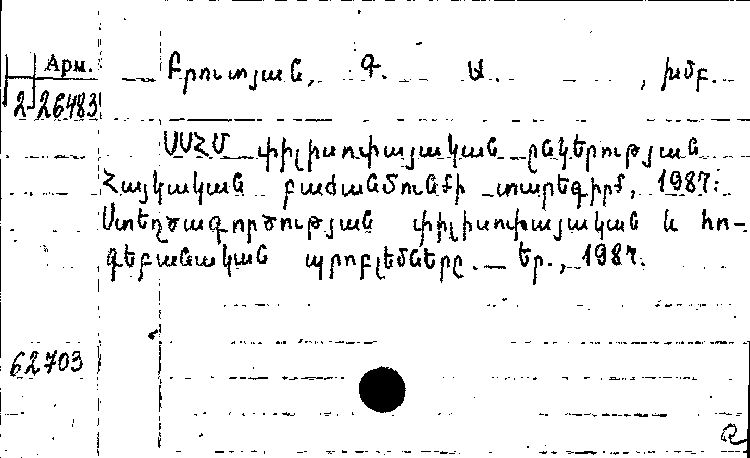 Арм.
2-26483
Բրուտյան, Գ. Ա. , խմբ.
ՍՍՀՄ փիլիսոփայական ընկերության
Հայկական բաժանմունքի տարեգիրք, 1987:
Ստեղծագործության փիլիսոփայական և հո-
գեբանական պրոբլեմները. — Եր., 1987.
62703